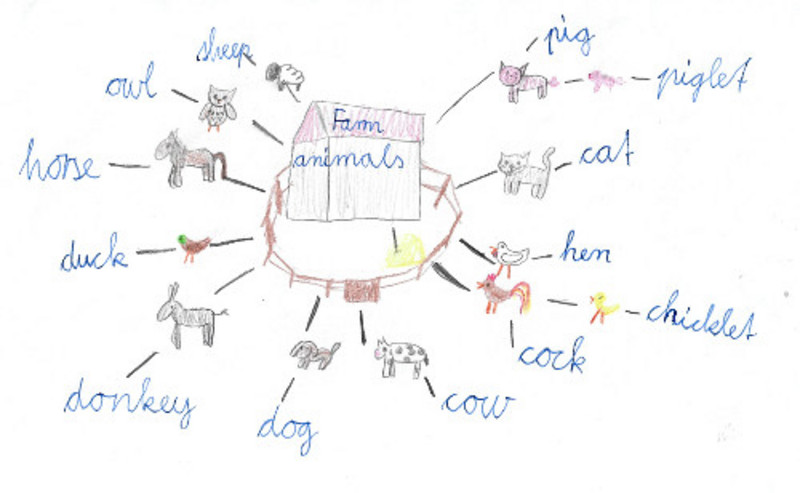 sheep
pig
owl
piglet
Fam
animals
horse
cat
duck
hen
chicklet
cock
donkey
dog
cow